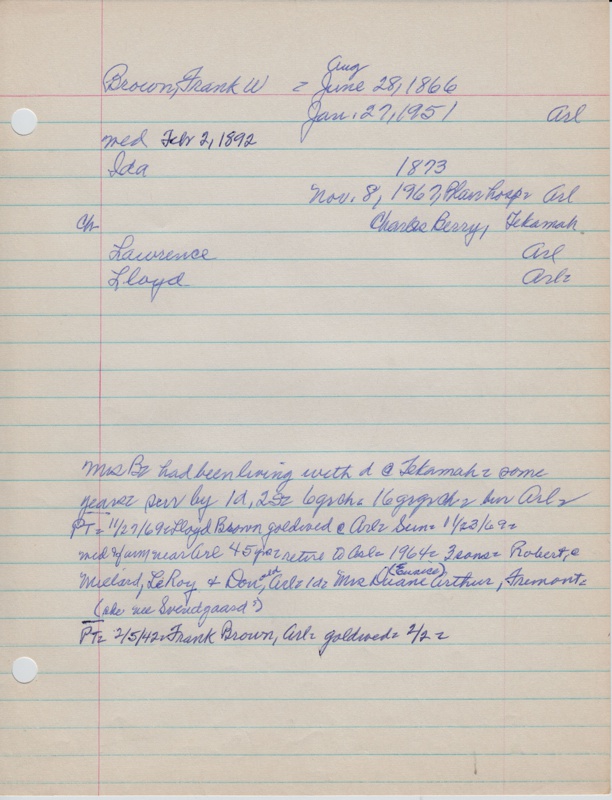 Aug
Brown, Frank W = June 28, 1866
Jan. 27, 1951 Arl
wed Feb 2, 1892
Ida 1873
Nov. 8, 1967, Blair hosp= Arl
ch Charles Berry, Tekamah
Lawrence Arl
Lloyd Arl=
Mrs B= had been living with d @ Tekamah= some
years= surv by 1d, 2s= 6grch= 16grgrch= bur Arl=
PT= 11/27/69= Lloyd Brown goldwed @ Arl= Sun= 11/23/69=
wed= farm near Arl 45 yrs= retire to Arl= 1964= 3 sons= Robert,
Millard, LeRoy & Don, Arl= 1d= Mrs Duane Arthur, Fremont=
(Eunice)
(she nee Svendgaard?)
PT= 2/5/42= Frank Brown, Arl= goldwed= 2/2=